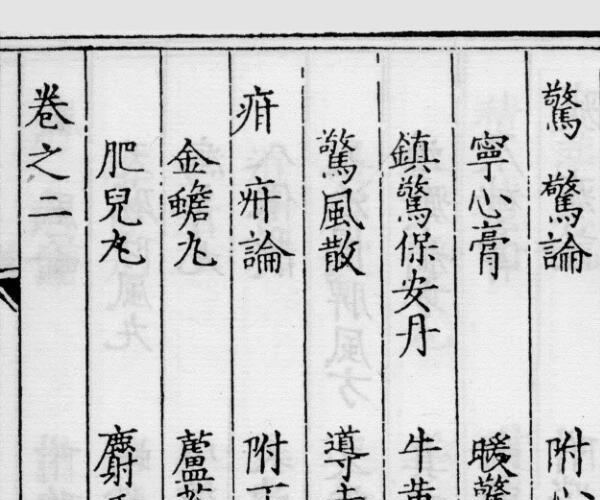 驚　驚論　附
寧心膏　暖驚
鎮驚保安丹　牛黄
驚風散　導赤
疳　疳論　附
金蟾丸　蘆薈
肥兒丸　麝
卷之二